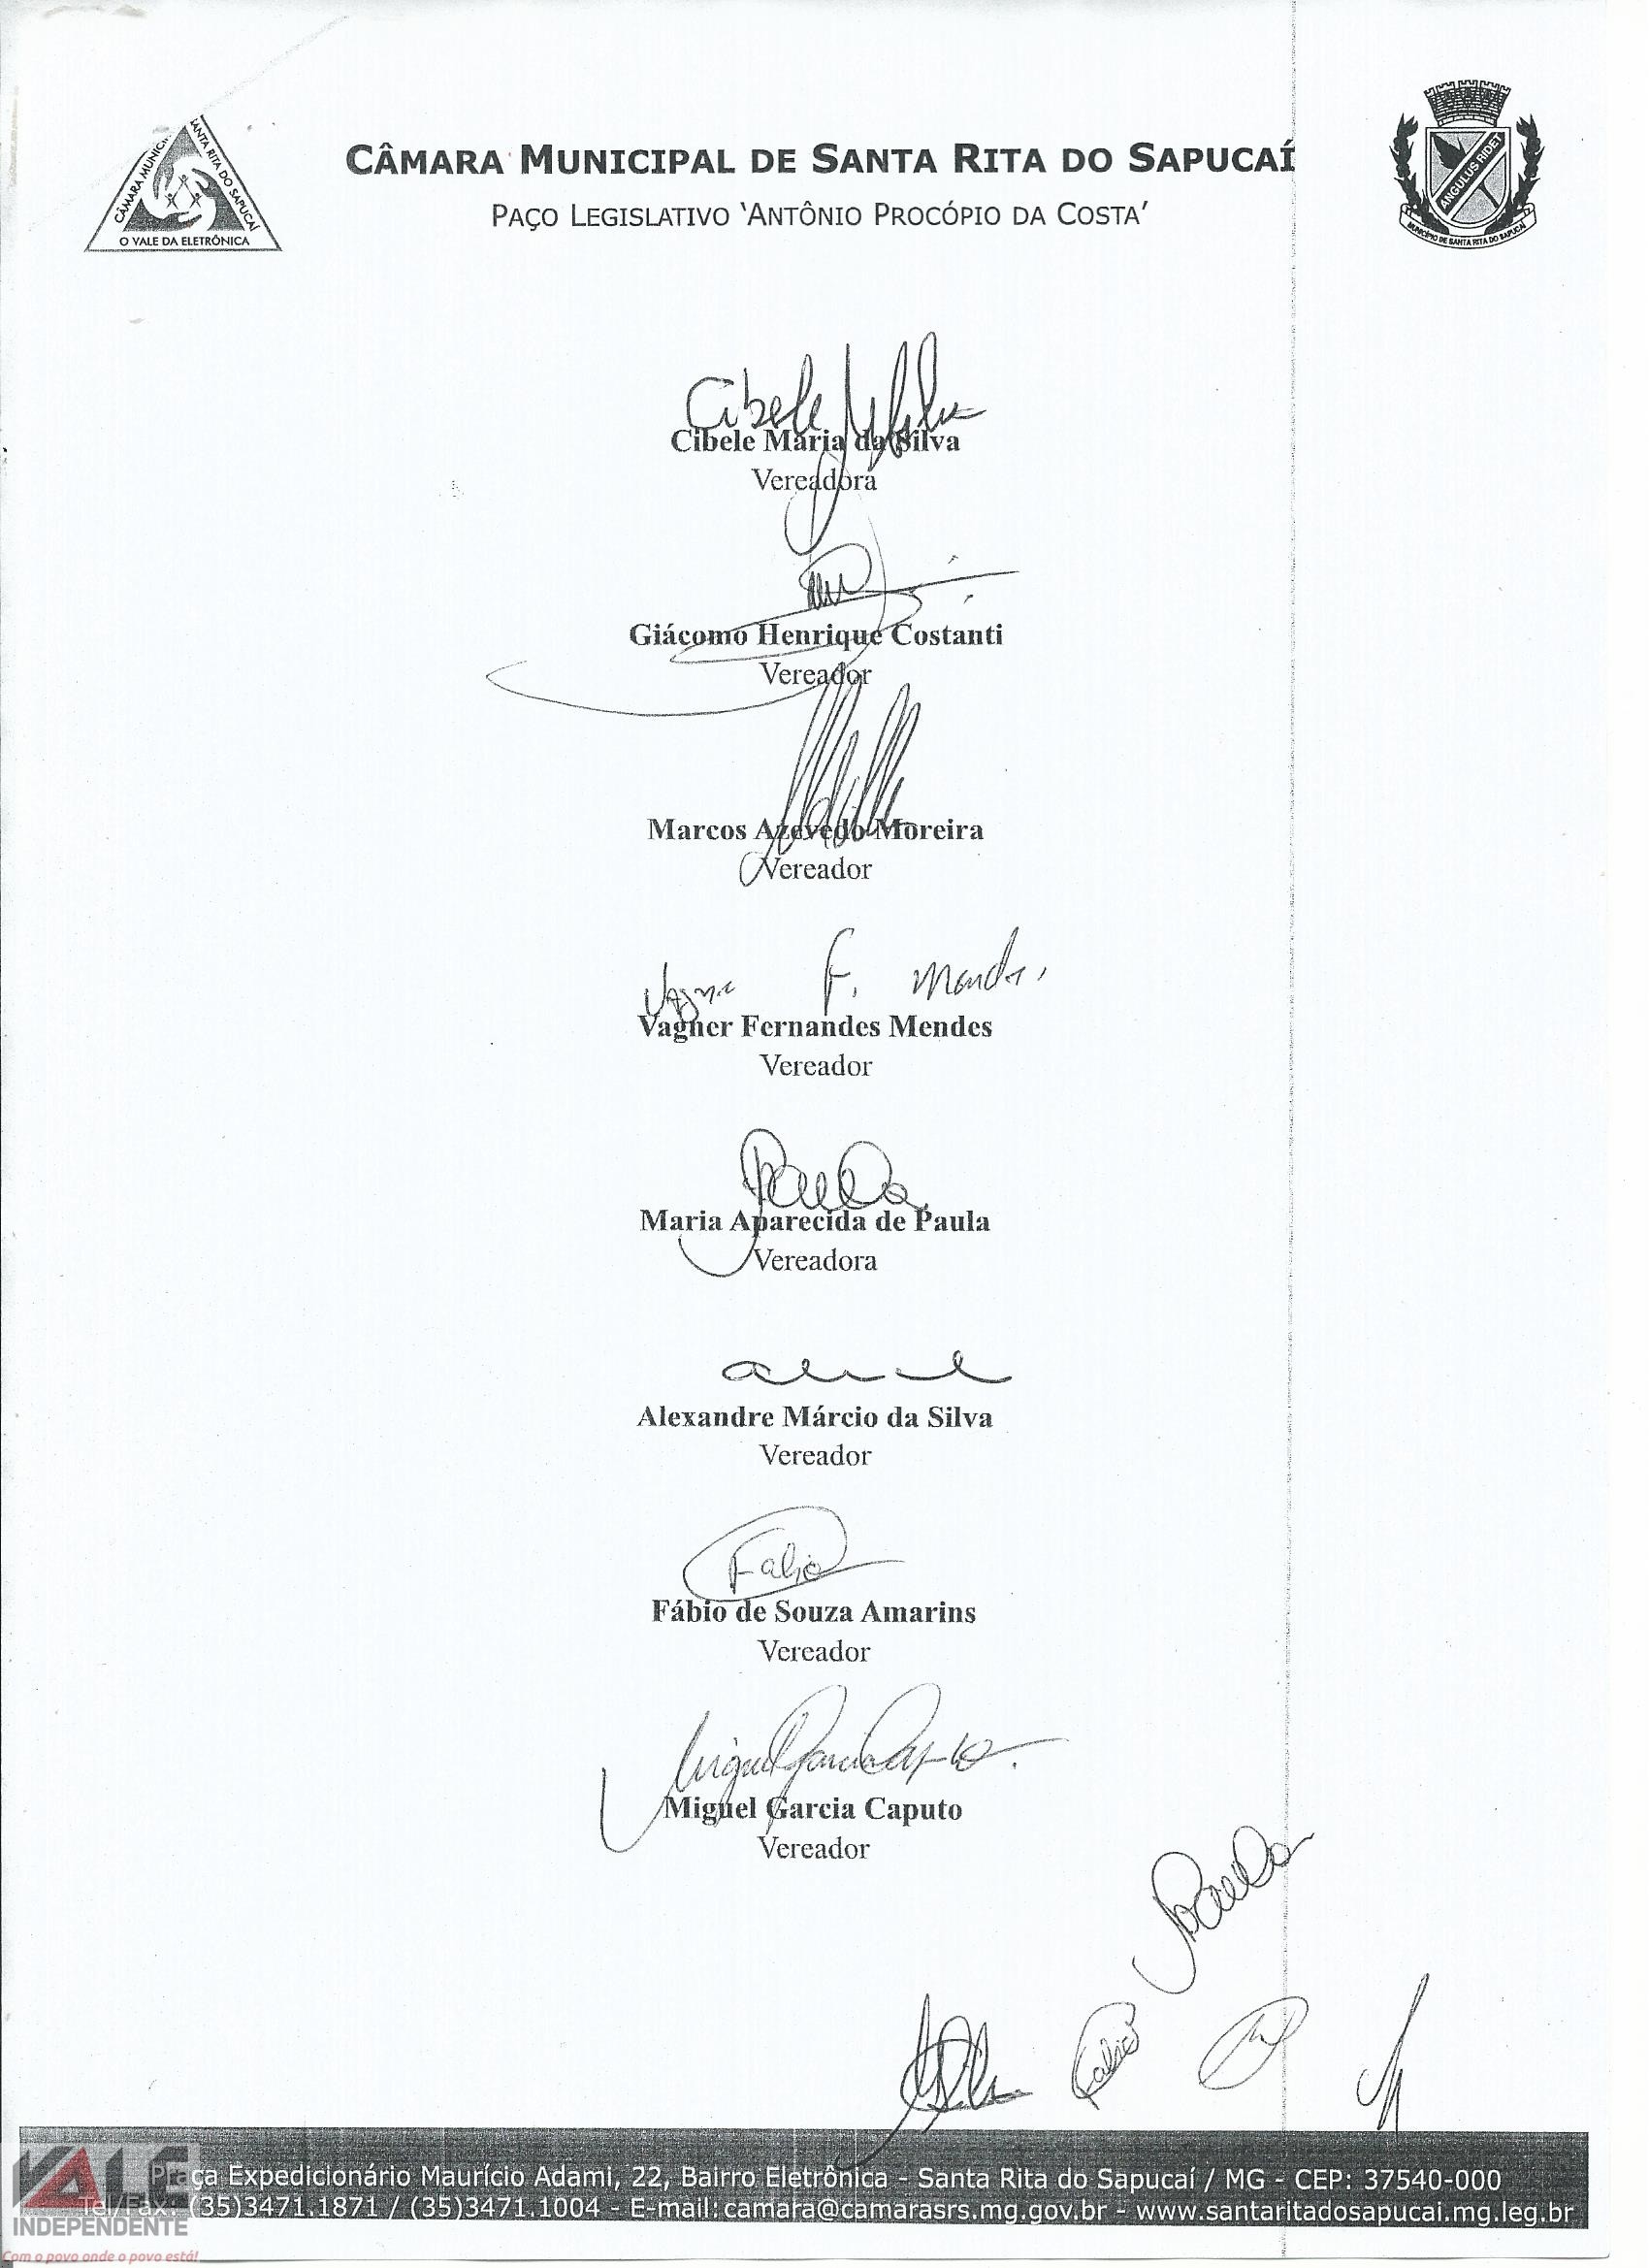 CÂMARA MUNICIPAL DE SANTA RITA DO SAPUCAÍ
PAÇO LEGISLATIVO ‘ANTÔNIO PROCÓPIO DA COSTA’
CÂMARA MUNIC SANTA RITA DO SAPUCAÍ
O VALE DA ELETRÔNICA
ANGULUS RIDET
MUNICÍPIO DE SANTA RITA DO SAPUCAÍ
Cibele
Cibele Maria da Silva
Vereadora
Giácomo Henrique Costanti
Vereador
Marcos Azevedo Moreira
Vereador
F.
Vagner Fernandes Mendes
Vereador
Paula
Maria Aparecida de Paula
Vereadora
Alexandre Márcio da Silva
Vereador
Fabio
Fábio de Souza Amarins
Vereador
Miguel Garcia Caputo
Miguel Garcia Caputo
Vereador
Paula
Fabio
Praça Expedicionário Maurício Adami, 22, Bairro Eletrônica - Santa Rita do Sapucaí / MG - CEP: 37540-000
Tel/Fax: (35)3471.1871 / (35)3471.1004 - E-mail: camara@camarasrs.mg.gov.br - www.santaritadosapucai.mg.leg.br
VALE
INDEPENDENTE
Com o povo onde o povo está!